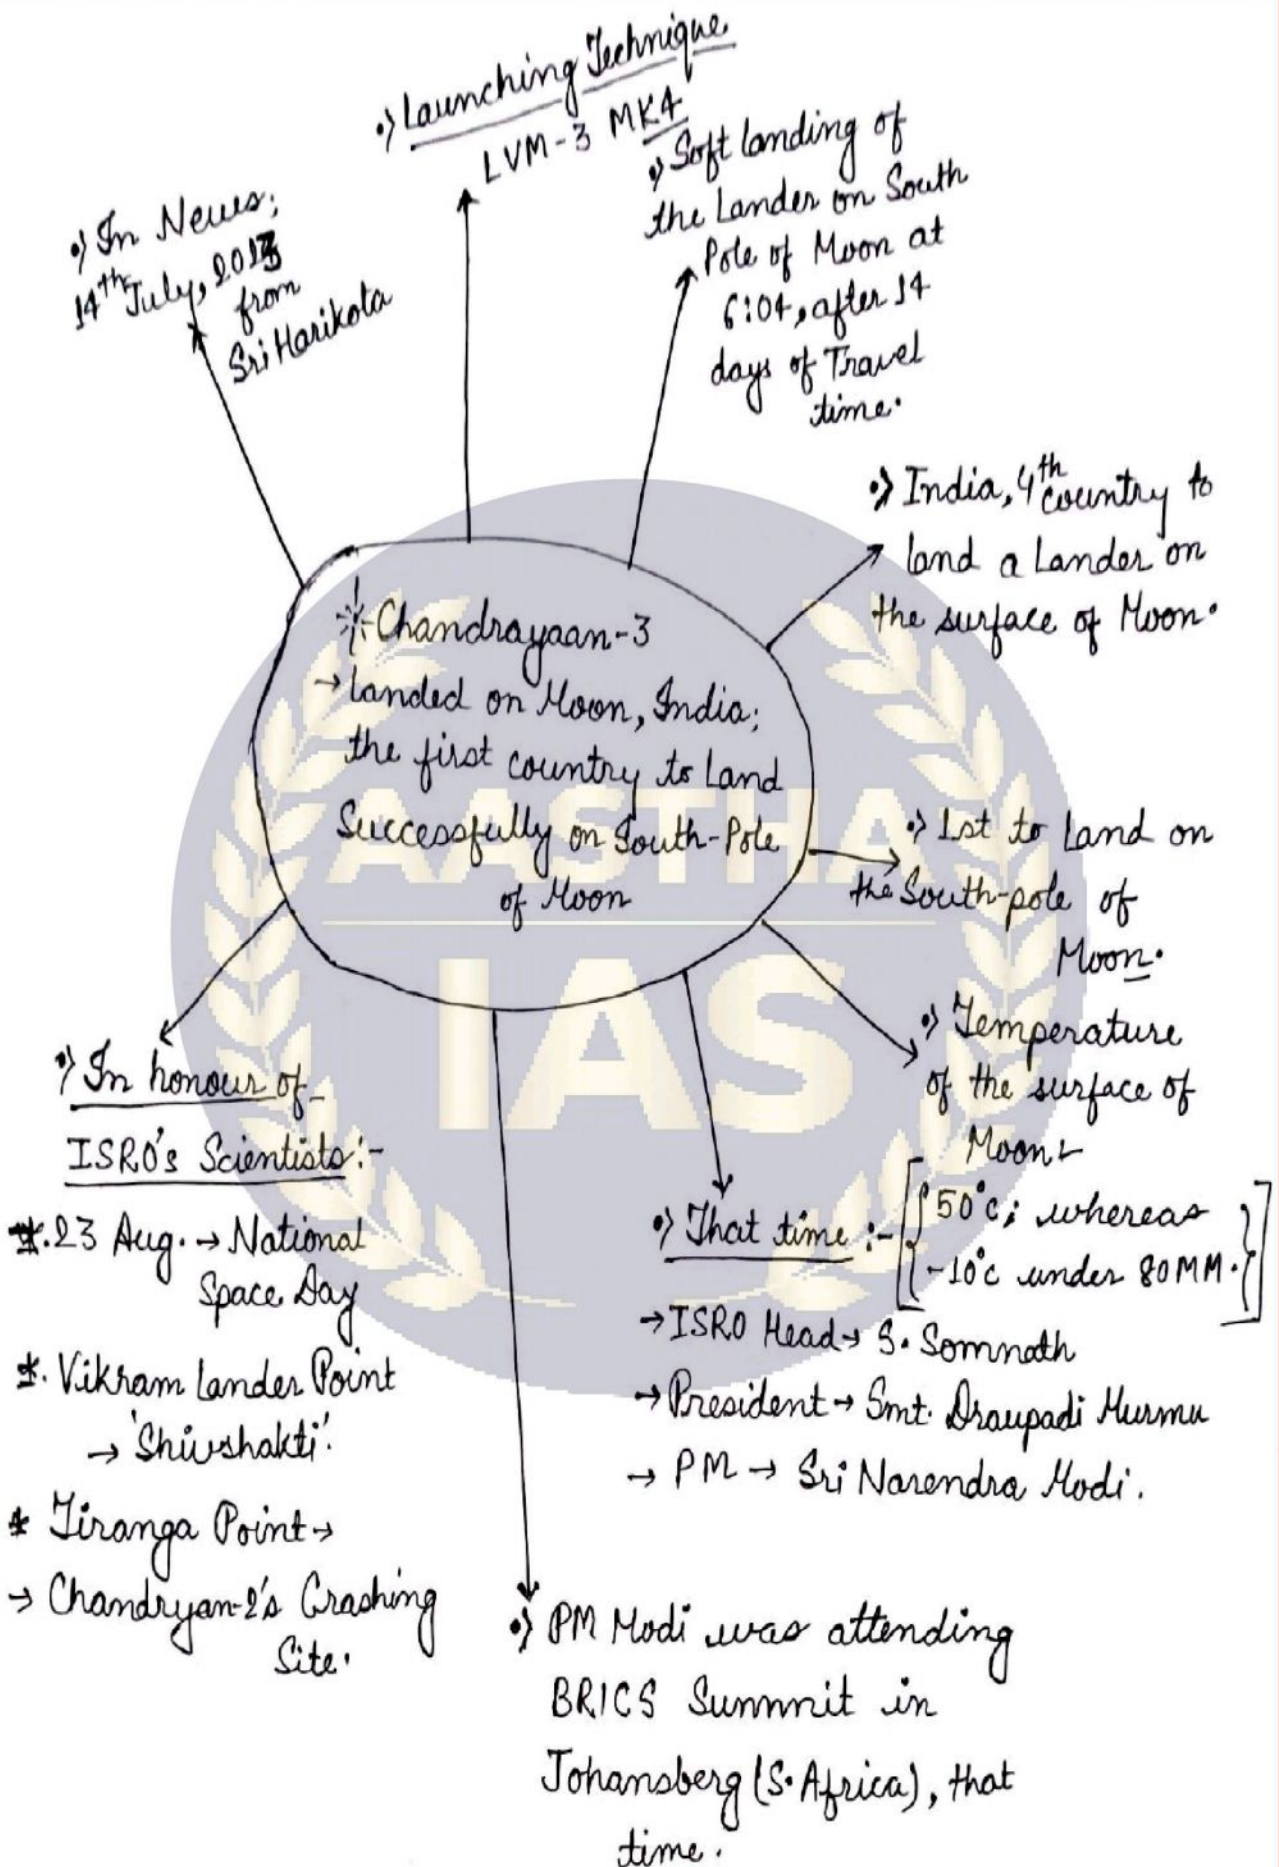 •) Launching Technique
LVM-3 MK4
•) In News;
14th July, 2023
from
Sri Harikota
•) Soft landing of
the Lander on South
Pole of Moon at
6:04, after 14
days of Travel
time.
•) India, 4th country to
land a Lander on
the surface of Moon.
Chandrayaan-3
→ landed on Moon, India;
the first country to Land
Successfully on South-Pole
of Moon
•) 1st to Land on
the South-pole of
Moon.
•) Temperature
of the surface of
Moon:-
50°c; whereas
-10°c under 80MM.
•) In honour of
ISRO's Scientists:-
*. 23 Aug. → National
Space Day
*. Vikram Lander Point
→ 'Shivshakti'.
* Tiranga Point →
→ Chandryan-2's Crashing
Site.
•) That time :-
→ ISRO Head → S. Somnath
→ President → Smt. Draupadi Murmu
→ PM → Sri Narendra Modi.
•) PM Modi was attending
BRICS Summit in
Johansberg (S. Africa), that
time.
AASTHA
IAS